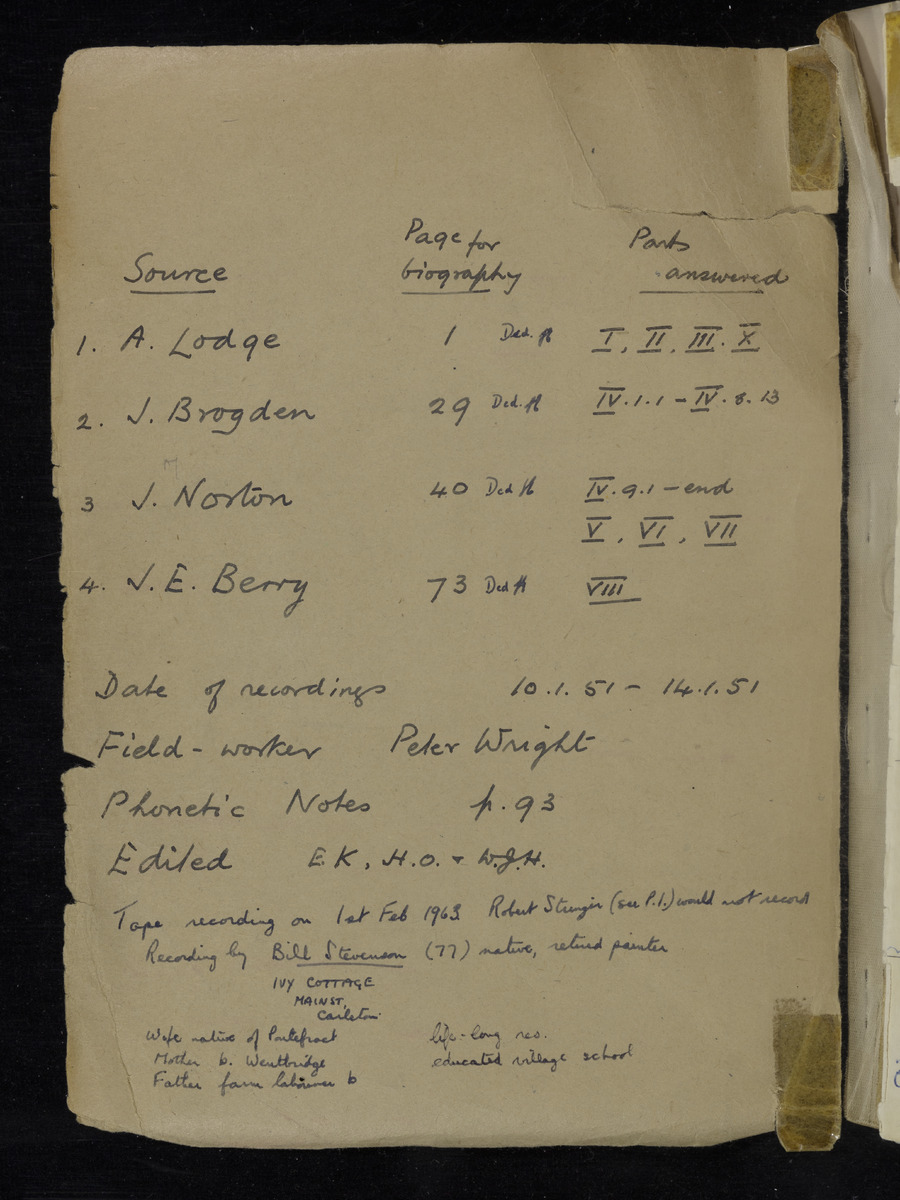 Source
Page for
biography
Parts
answered
1. A. Lodge 1 Ded. I, II, III. X
2. J. Brogden 29 Ded. IV.1.1 – IV.8.13
3 J. Norton 40 Ded IV.9.1 – end
V, VI, VII
4. J.E. Berry 73 Ded VIII
Date of recordings 10.1.51 – 14.1.51
Field-worker Peter Wright
Phonetic Notes p.93
Edited E.K, H.O. + W.J.H.
Tape recording on 1st Feb 1963 Robert (see P.1.) would not record
Recording by Bill Stevenson (77) native, retired painter
IVY COTTAGE
MAIN ST,
Carleton
Wife native of Pontefract life-long res.
Mother b. Wentbridge educated village school
Father farm labourer b